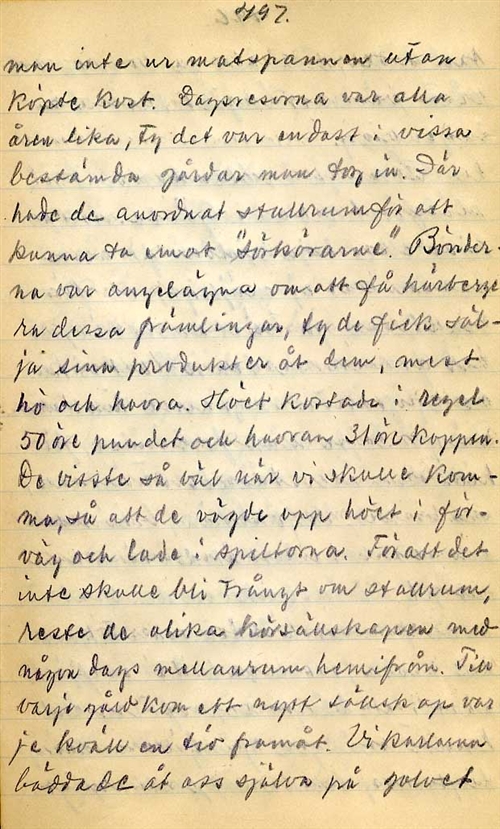 497.
man inte ur matspannen utan
köpte kost. Dagsresorna var alla
åren lika, ty det var endast i vissa
bestämda gårdar man tog in. Där
hade de anordnat stallrum för att
kunna ta emot "Sörkörarne". Bönder-
na var angelägna om att få härberge
ra dessa främlingar, ty de fick säl-
ja sina produkter åt dem, mest
hö och havra. Höet kostade i regel
50 öre pundet och havran 31 öre koppen.
De visste så väl när vi skulle kom-
ma, så att de vägde opp höet i för-
väg och lade i spiltorna. För att det
inte skulle bli trångt om stallrum,
reste de olika körsällskapen med
någon dags mellanrum hemifrån. Till
varje gård kom ett nytt sällskap var
je kväll en tid framåt. Vi karlarna
bäddade åt oss själva på golvet